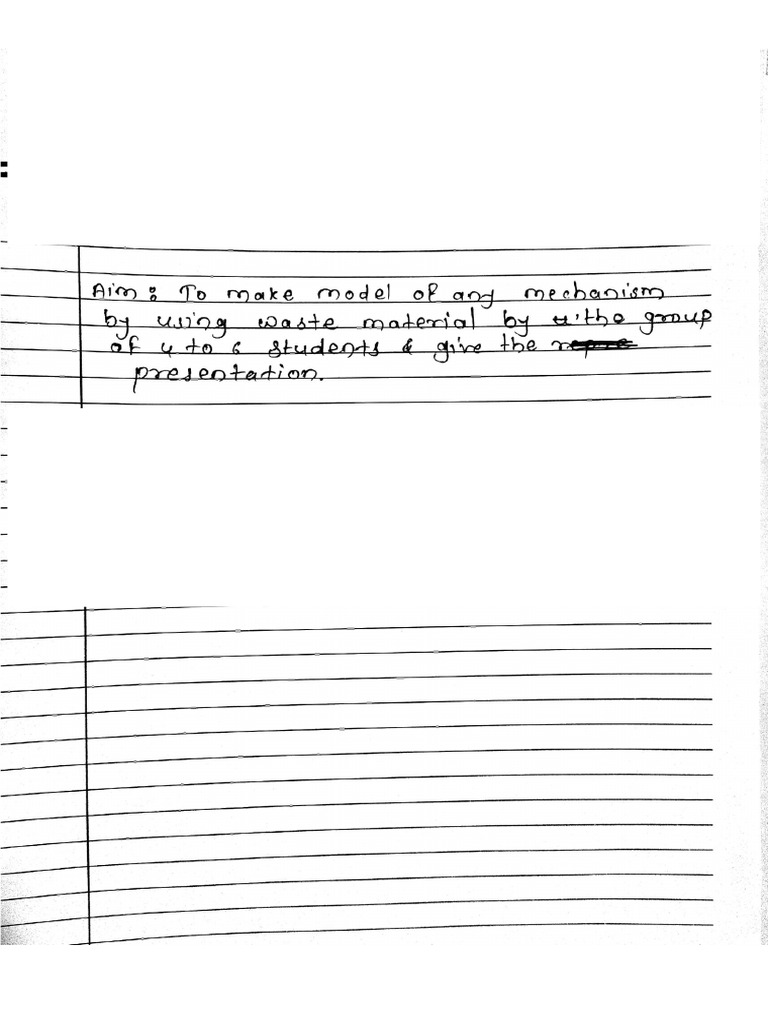 Aim: To make model of any mechanism
by using waste material by the group
of 4 to 6 students & give the
presentation.